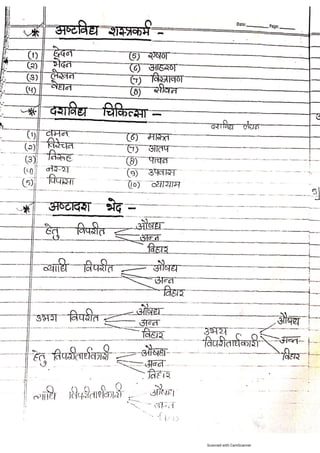 Date: Page:
* अष्टविध शस्त्रकर्म -
(1) छेदन (5) एषण
(2) भेदन (6) आहरण
(3) लेखन (7) विस्त्रावण
(4) वेधन (8) सीवन
* दशविध चिकित्सा -
दशविध लंघन
(1) वमन (6) मारुत
(2) विरेचन (7) आतप
(3) निरुह (8) पाचन
(4) नस्य (9) उपवास
(5) पिपासा (10) व्यायाम
* अष्टादश भेद -
हेतु विपरीत औषध
अन्न
विहार
व्याधि विपरीत औषध
अन्न
विहार
उभय विपरीत औषध
अन्न
विहार
हेतु विपरीतार्थकारी औषध
अन्न
विहार
व्याधि विपरीतार्थकारी औषध
अन्न
उभय विपरीतार्थकारी औषध
अन्न
विहार
Scanned with CamScanner